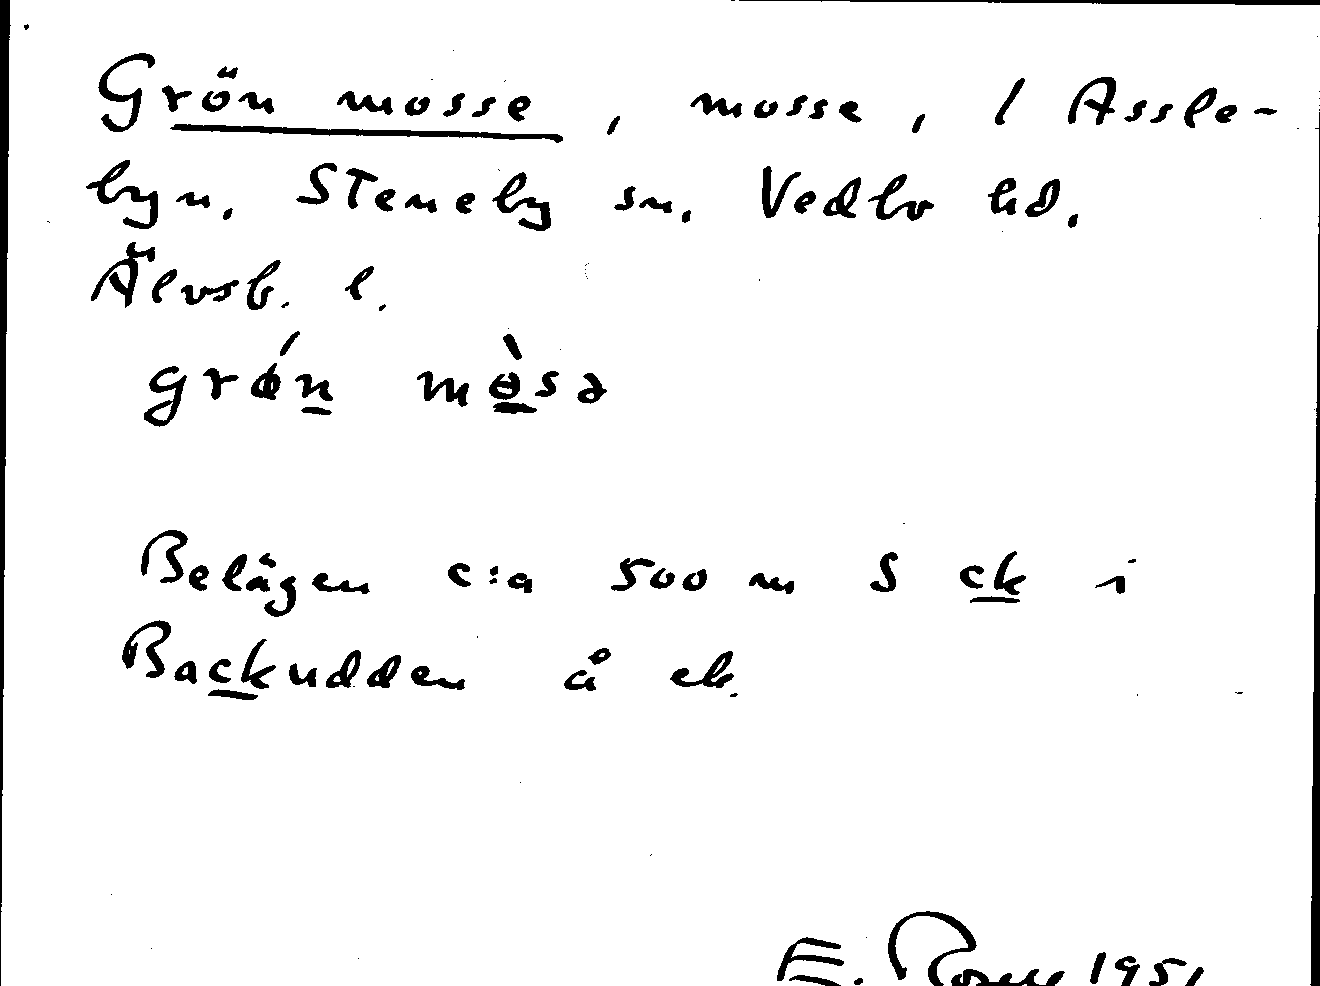 Grön mosse, mosse, / Assle-
byn, Steneby sn. Vedbo hd.
Älvsb. l.
grǿn mɵ̀sə
Belägen c:a 500 m S ck i
Backudden å ek.
E. 1951